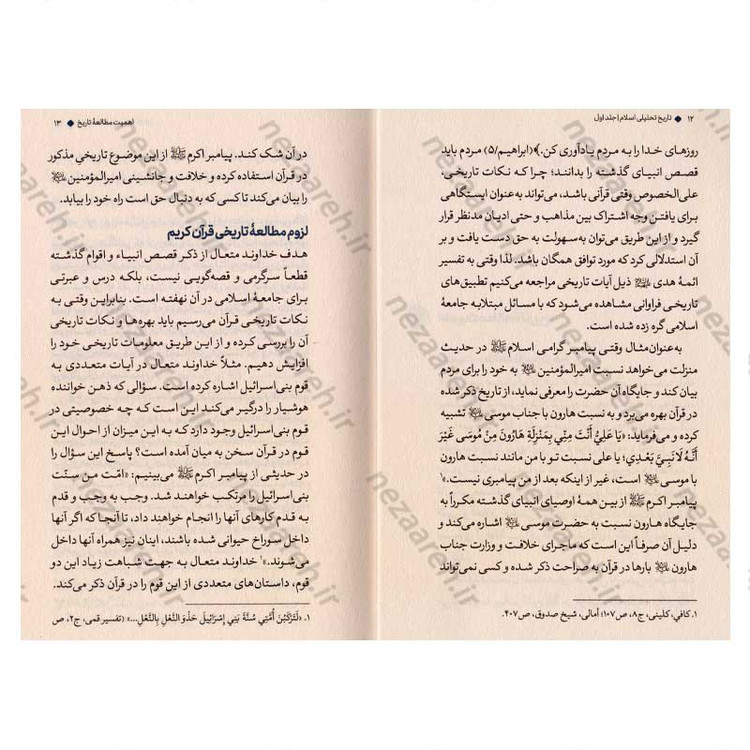 ۱۲ ◆ تاریخ تحلیلی اسلام | جلد اول
روزهای خدا را به مردم یادآوری کن.﴾(ابراهیم/۵) مردم باید
قصص انبیای گذشته را بدانند؛ چرا که نکات تاریخی،
علی‌الخصوص وقتی قرآنی باشد، می‌تواند به‌عنوان ایستگاهی
برای یافتن وجه اشتراک بین مذاهب و حتی ادیان مدنظر قرار
گیرد و از این طریق می‌توان به‌سهولت به حق دست یافت و بر
آن استدلالی کرد که مورد توافق همگان باشد. لذا وقتی به تفسیر
ائمهٔ هدی ذیل آیات تاریخی مراجعه می‌کنیم تطبیق‌های
تاریخی فراوانی مشاهده می‌شود که با مسائل مبتلابه جامعهٔ
اسلامی گره زده شده است.
به‌عنوان‌مثال وقتی پیامبر گرامی اسلام ﷺ در حدیث
منزلت می‌خواهد نسبت امیرالمؤمنین به خود را برای مردم
بیان کند و جایگاه آن حضرت را معرفی نماید، از تاریخ ذکر شده
در قرآن بهره می‌برد و به نسبت هارون با جناب موسی تشبیه
کرده و می‌فرماید: «يَا عَلِيُّ أَنْتَ مِنِّي بِمَنْزِلَةِ هَارُونَ مِنْ مُوسَى غَيْرَ
أَنَّهُ لَا نَبِيَّ بَعْدِي؛ یا علی نسبت تو با من مانند نسبت هارون
با موسی است، غیر از اینکه بعد از من پیامبری نیست.»۱
پیامبر اکرم ﷺ از بین همهٔ اوصیای انبیای گذشته مکرراً به
جایگاه هارون نسبت به حضرت موسی اشاره می‌کند و
دلیل آن صرفاً این است که ماجرای خلافت و وزارت جناب
هارون بارها در قرآن به صراحت ذکر شده و کسی نمی‌تواند
۱. کافی، کلینی، ج۸، ص۱۰۷؛ أمالی، شیخ صدوق، ص۴۰۷.
اهمیت مطالعهٔ تاریخ ◆ ۱۳
در آن شک کند. پیامبر اکرم ﷺ از این موضوع تاریخیِ مذکور
در قرآن استفاده کرده و خلافت و جانشینی امیرالمؤمنین
را بیان می‌کند تا کسی که به دنبال حق است راه خود را بیابد.
لزوم مطالعهٔ تاریخی قرآن کریم
هدف خداوند متعال از ذکر قصص انبیاء و اقوام گذشته
قطعاً سرگرمی و قصه‌گویی نیست، بلکه درس و عبرتی
برای جامعهٔ اسلامی در آن نهفته است. بنابراین وقتی به
نکات تاریخی قرآن می‌رسیم باید بهره‌ها و نکات تاریخی
آن را بررسی کرده و از این طریق معلومات تاریخی خود را
افزایش دهیم. مثلاً خداوند متعال در آیات متعددی به
قوم بنی‌اسرائیل اشاره کرده است. سؤالی که ذهن خواننده
هوشیار را درگیر می‌کند این است که چه خصوصیتی در
قوم بنی‌اسرائیل وجود دارد که به این میزان از احوال این
قوم در قرآن سخن به میان آمده است؟ پاسخ این سؤال را
در حدیثی از پیامبر اکرم ﷺ می‌بینیم: «امّت من سنّت
بنی‌اسرائیل را مرتکب خواهند شد. وجب به وجب و قدم
به قدم کارهای آنها را انجام خواهند داد، تا آنجا که اگر آنها
داخل سوراخ حیوانی شده باشند، اینان نیز همراه آنها داخل
می‌شوند.»۱ خداوند متعال به جهت شباهت زیاد این دو
قوم، داستان‌های متعددی از این قوم را در قرآن ذکر می‌کند.
۱. «لَتَرْكَبُنَّ أُمَّتِي سُنَّةَ بَنِي إِسْرَائِيلَ حَذْوَ النَّعْلِ بِالنَّعْلِ...» (تفسیر قمی، ج۲، ص
nezaareh.ir
nezaareh.ir
nezaareh.ir
nezaareh.ir
nezaareh.ir
nezaareh.ir